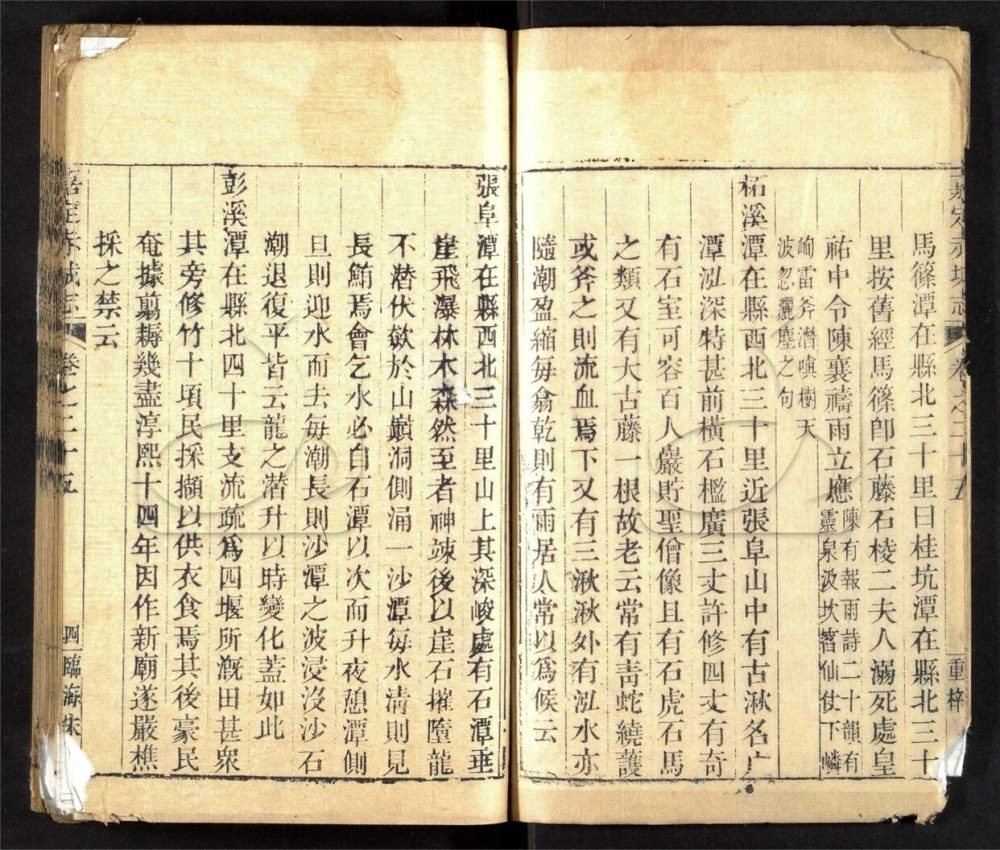 嘉定赤城志 卷之二十五 重梓
馬篠潭在縣北三十里曰桂坑潭在縣北三十
里按舊經馬篠卽石藤石棱二夫人溺死處皇
祐中令陳襄禱雨立應陳有報雨詩二十韻有靈泉汲坎窞仙仗下嶙
峋雷斧潛嗔樹天波忽灑塵之句
柘溪潭在縣西北三十里近張阜山中有古湫名广
潭泓深特甚前橫石檻廣三丈許修四丈有奇
有石室可容百人嚴貯聖僧像且有石虎石馬
之類又有大古藤一根故老云常有靑蛇繞護
或斧之則流血焉下又有三湫湫外有泓水亦
隨潮盈縮每翕乾則有雨居人常以爲候云
張阜潭在縣西北三十里山上其深峻處有石潭垂
崖飛瀑林木森然至者神竦後以崖石摧墮龍
不潛伏歘於山巔洞側涌一沙潭每水清則見
長鮪焉會乞水必自石潭以次而升夜憩潭側
旦則迎水而去每潮長則沙潭之波浸沒沙石
潮退復平皆云龍之潛升以時變化蓋如此
彭溪潭在縣北四十里支流疏爲四堰所溉田甚衆
其旁修竹十頃民採擷以供衣食焉其後豪民
奄據翦耨幾盡淳熙十四年因作新廟遂嚴樵
採之禁云
嘉定赤城志 卷之二十五 四 臨海宋